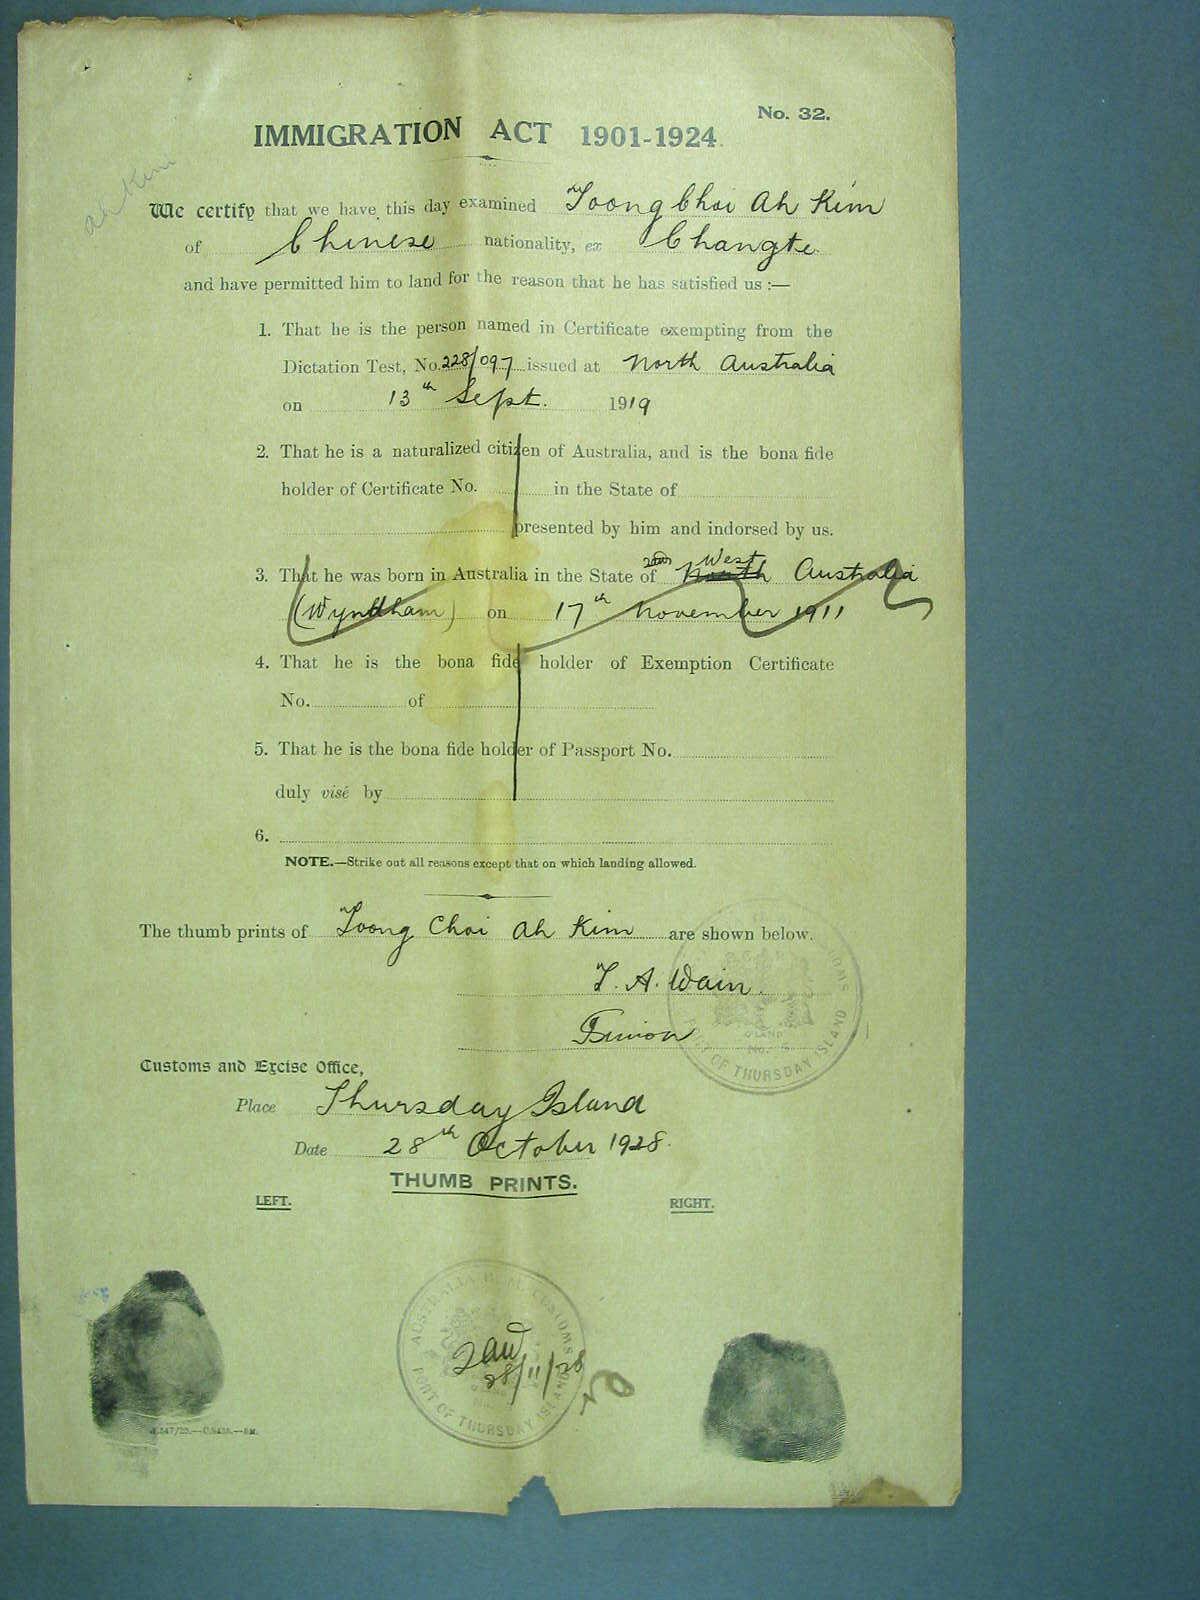 No. 32.
IMMIGRATION ACT 1901-1924.
Ah Kim
We certify that we have this day examined Toong Choi Ah Kim
of Chinese nationality, ex Changte.
and have permitted him to land for the reason that he has satisfied us :—
1. That he is the person named in Certificate exempting from the
Dictation Test, No. 228/097 issued at North Australia
on 13th Sept. 1919
2. That he is a naturalized citizen of Australia, and is the bona fide
holder of Certificate No. in the State of
presented by him and indorsed by us.
West
3. That he was born in Australia in the State of North Australia
(Wyndham) on 17th November 1911
4. That he is the bona fide holder of Exemption Certificate
No. of
5. That he is the bona fide holder of Passport No.
duly visé by
6.
NOTE.—Strike out all reasons except that on which landing allowed.
The thumb prints of Toong Choi Ah Kim are shown below.
T. A. Wain.
PORT OF THURSDAY ISLAND
Customs and Excise Office,
Place Thursday Island
Date 28th October 1928.
THUMB PRINTS.
LEFT. RIGHT.
AUSTRALIA H.M. CUSTOMS
28/11/28
PORT OF THURSDAY ISLAND